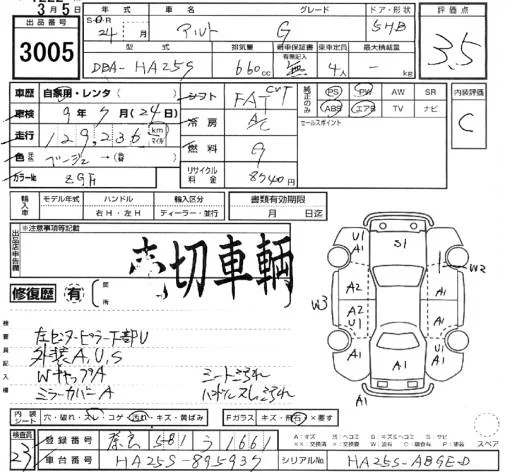 3月5日
出品番号 3005
年式 車名 グレード ドア・形状 評価点
S・O・R 24年 月 アルト G 5HB 3.5
型式 排気量 新車保証書 乗車定員 最大積載量
有無記入
DBA-HA25S 660cc 無 4人 - kg
車歴 自家用・レンタ( ) シフト FAT CVT 純正のみ PS PW AW SR 内装評価
車検 9年7月(24日) 冷房 A/C ABS エアB TV ナビ C
走行 129,236 km マイル セールスポイント
色 ベージュ →(替 ) 燃料 G
カラーNo. ZGH リサイクル料金 8540円
輸入車 モデル年式 ハンドル 輸入区分 書類有効期限
右H・左H ディーラー・並行 月 日迄
出品店申告欄 ※注意事項等記載
売切車輌
修復歴 有 箇所
検査員記入欄
左センターピラー下部U
外装A,U,S
WキャップA シートこすれ
ミラーカバーA ハンドルスレこすれ
U1 S1 A1 W2
A2 W3 A1
A2
U1 A1 A1
A1 A1
内装シート 穴・破れ・スレ・コゲ・汚れ・キズ・黄ばみ Fガラス キズ・飛石・×要す
検査員 23 登録番号 奈良 581 う 1661 スペア
車台番号 HA25S-895937 シリアルNo. HA25S-ABGE-D